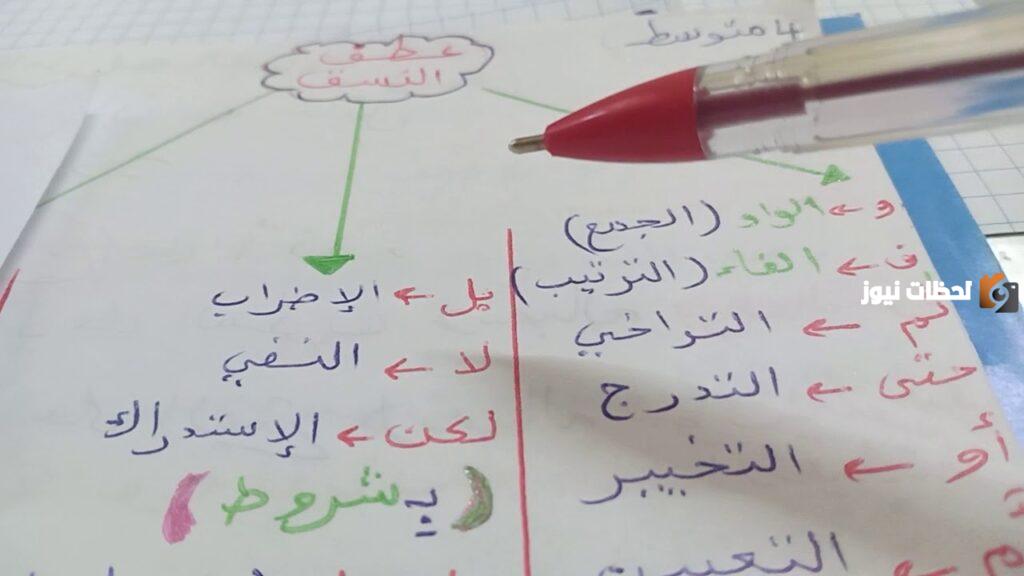 4 متوسط
عطف
النسق
و ← الواو (الجمع)
ف ← الفاء (الترتيب)
ثم ← التراخي
حتى ← التدرج
أو ← التخيير
← التعيين
بل ← الإضراب
لا ← النفي
لكن ← الإستدراك
(بشروط)
لحظات نيوز